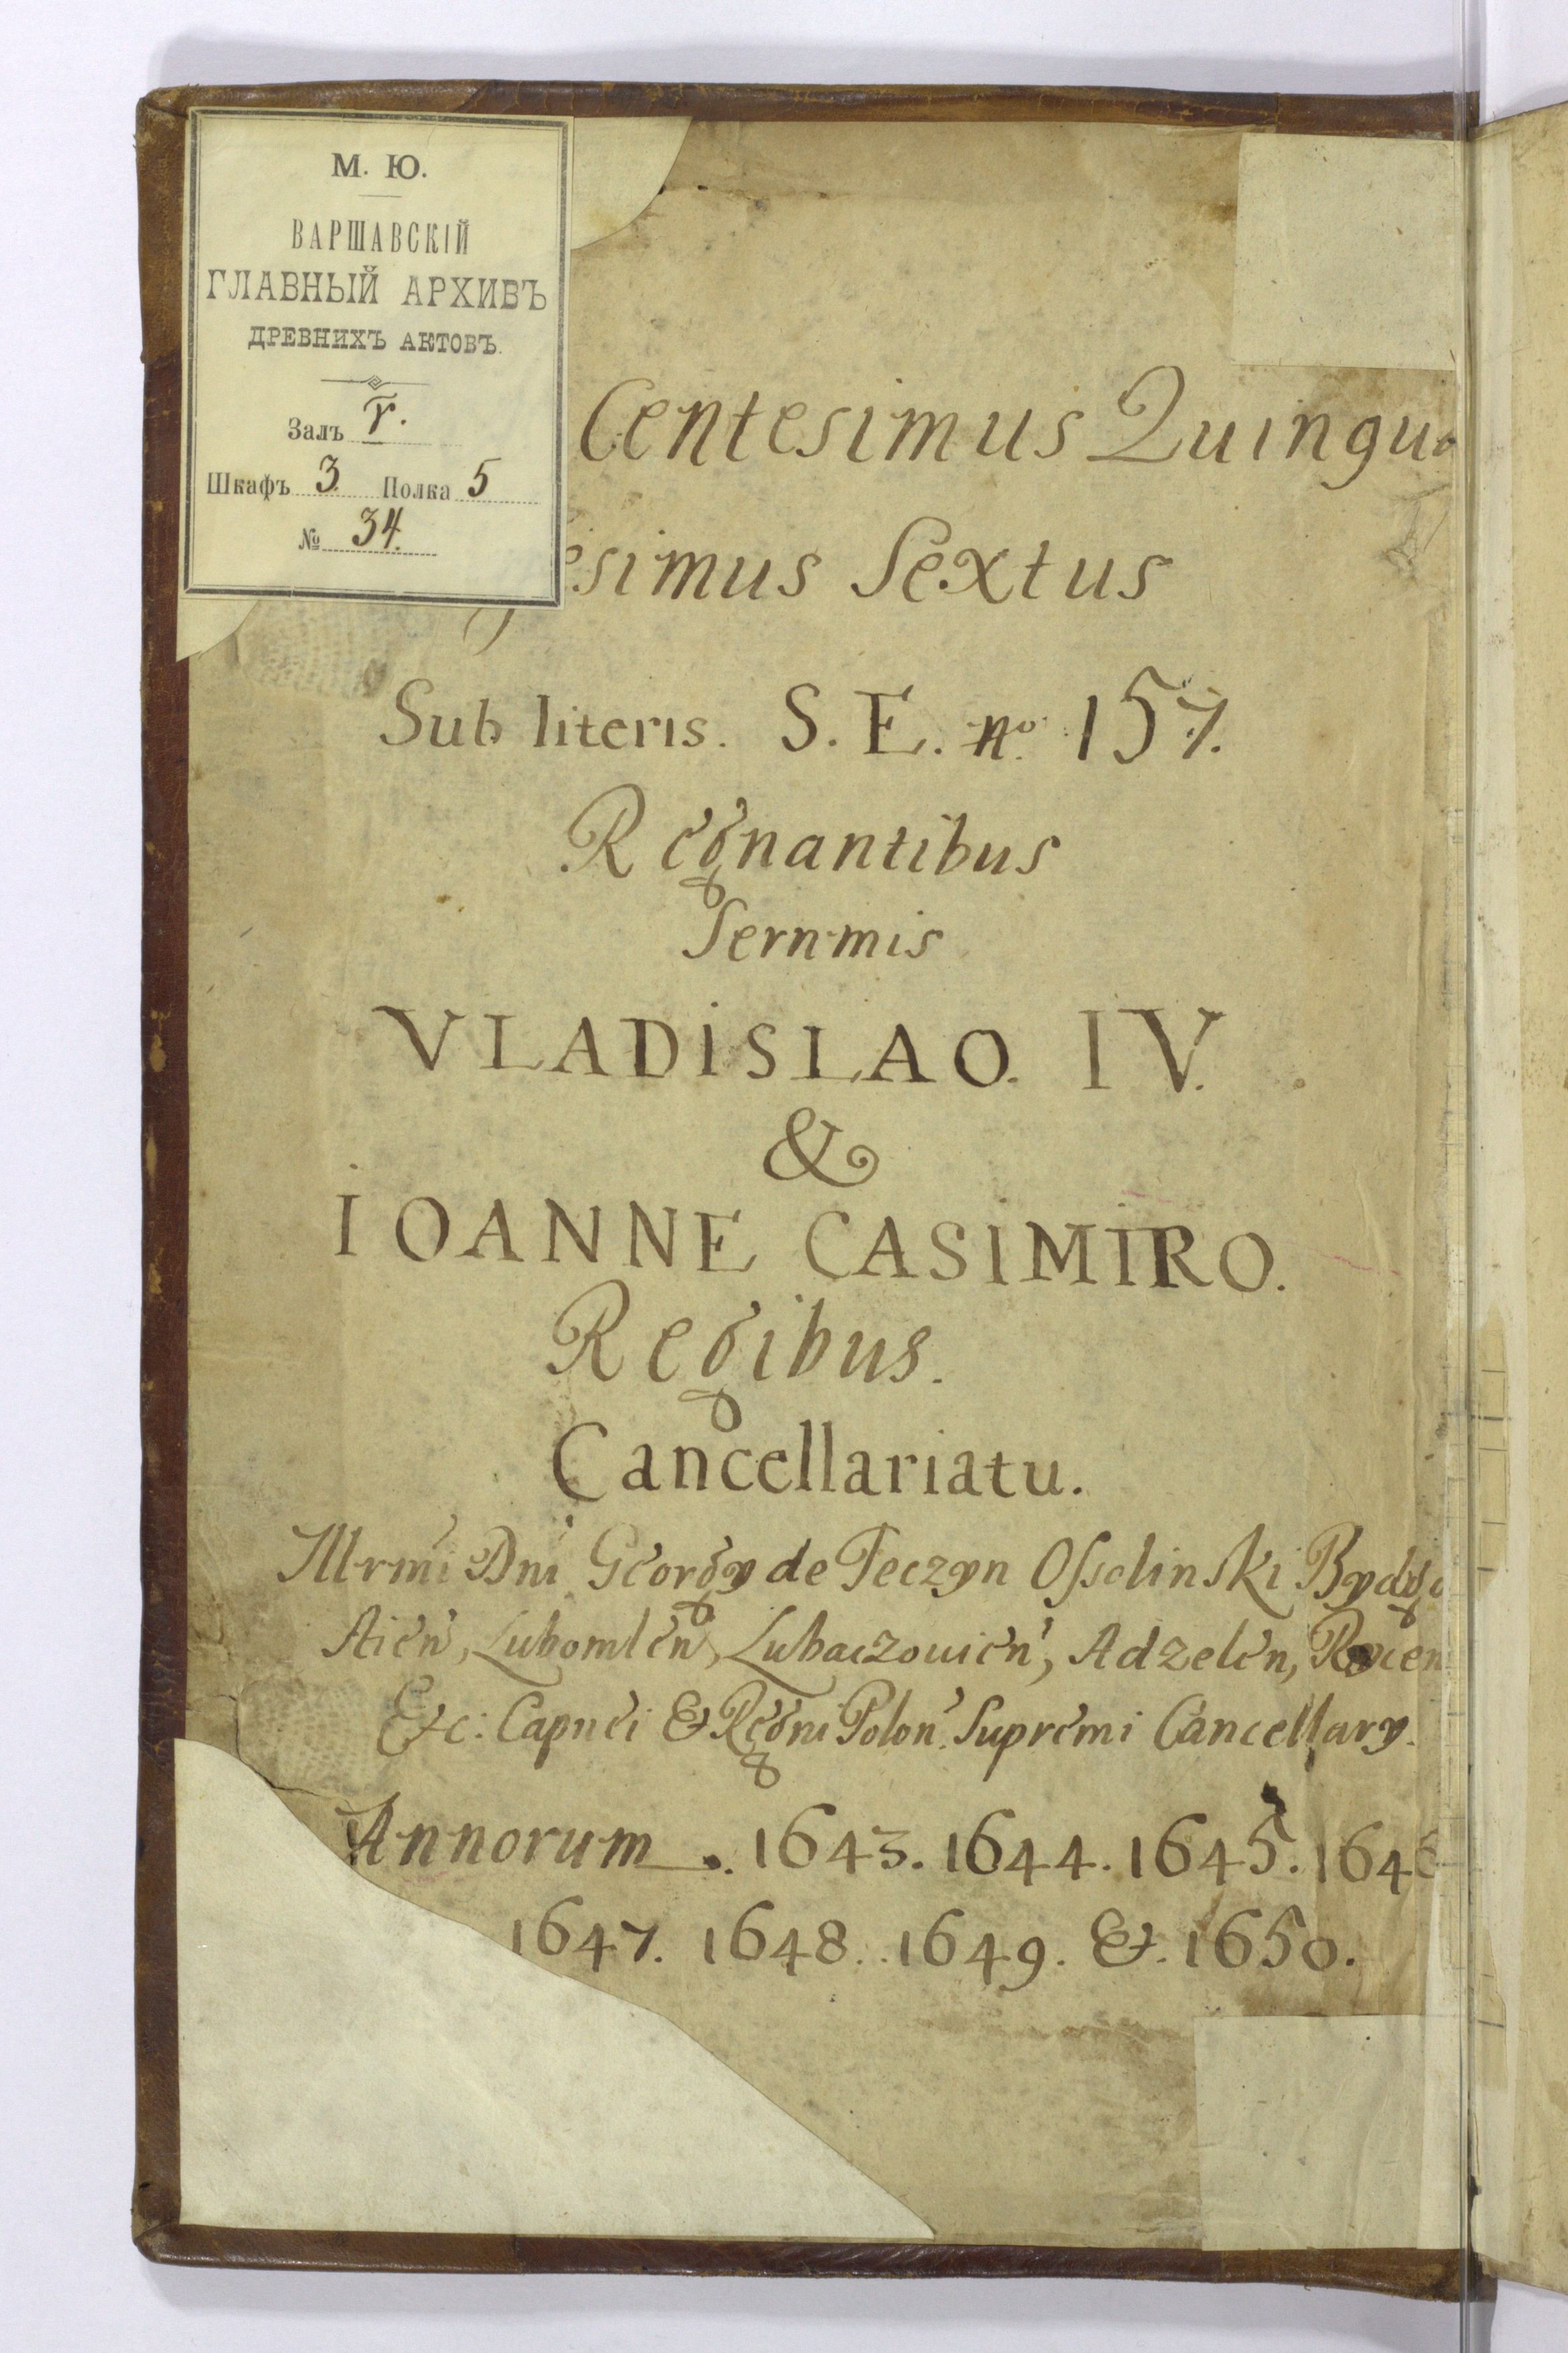 М. Ю.
ВАРШАВСКІЙ
ГЛАВНЫЙ АРХИВЪ
ДРЕВНИХЪ АКТОВЪ.
Залъ V.
Шкафъ 3. Полка 5
№ 34.
Centesimus Quinqua
esimus Sextus
Sub literis. S. E. nº. 157.
Regnantibus
Sernmis
VLADISLAO. IV.
&
IOANNE CASIMIRO.
Regibus.
Cancellariatu.
Illrmi Dni Georgy de Teczyn Ossolinski Bydgo
stien, Lubomlen, Lubaczouien, Adzelen,
Etc: Capnei & Regni Polon. Supremi Cancellary.
Annorum. 1643. 1644. 1645. 1646
1647. 1648. 1649. &. 1650.